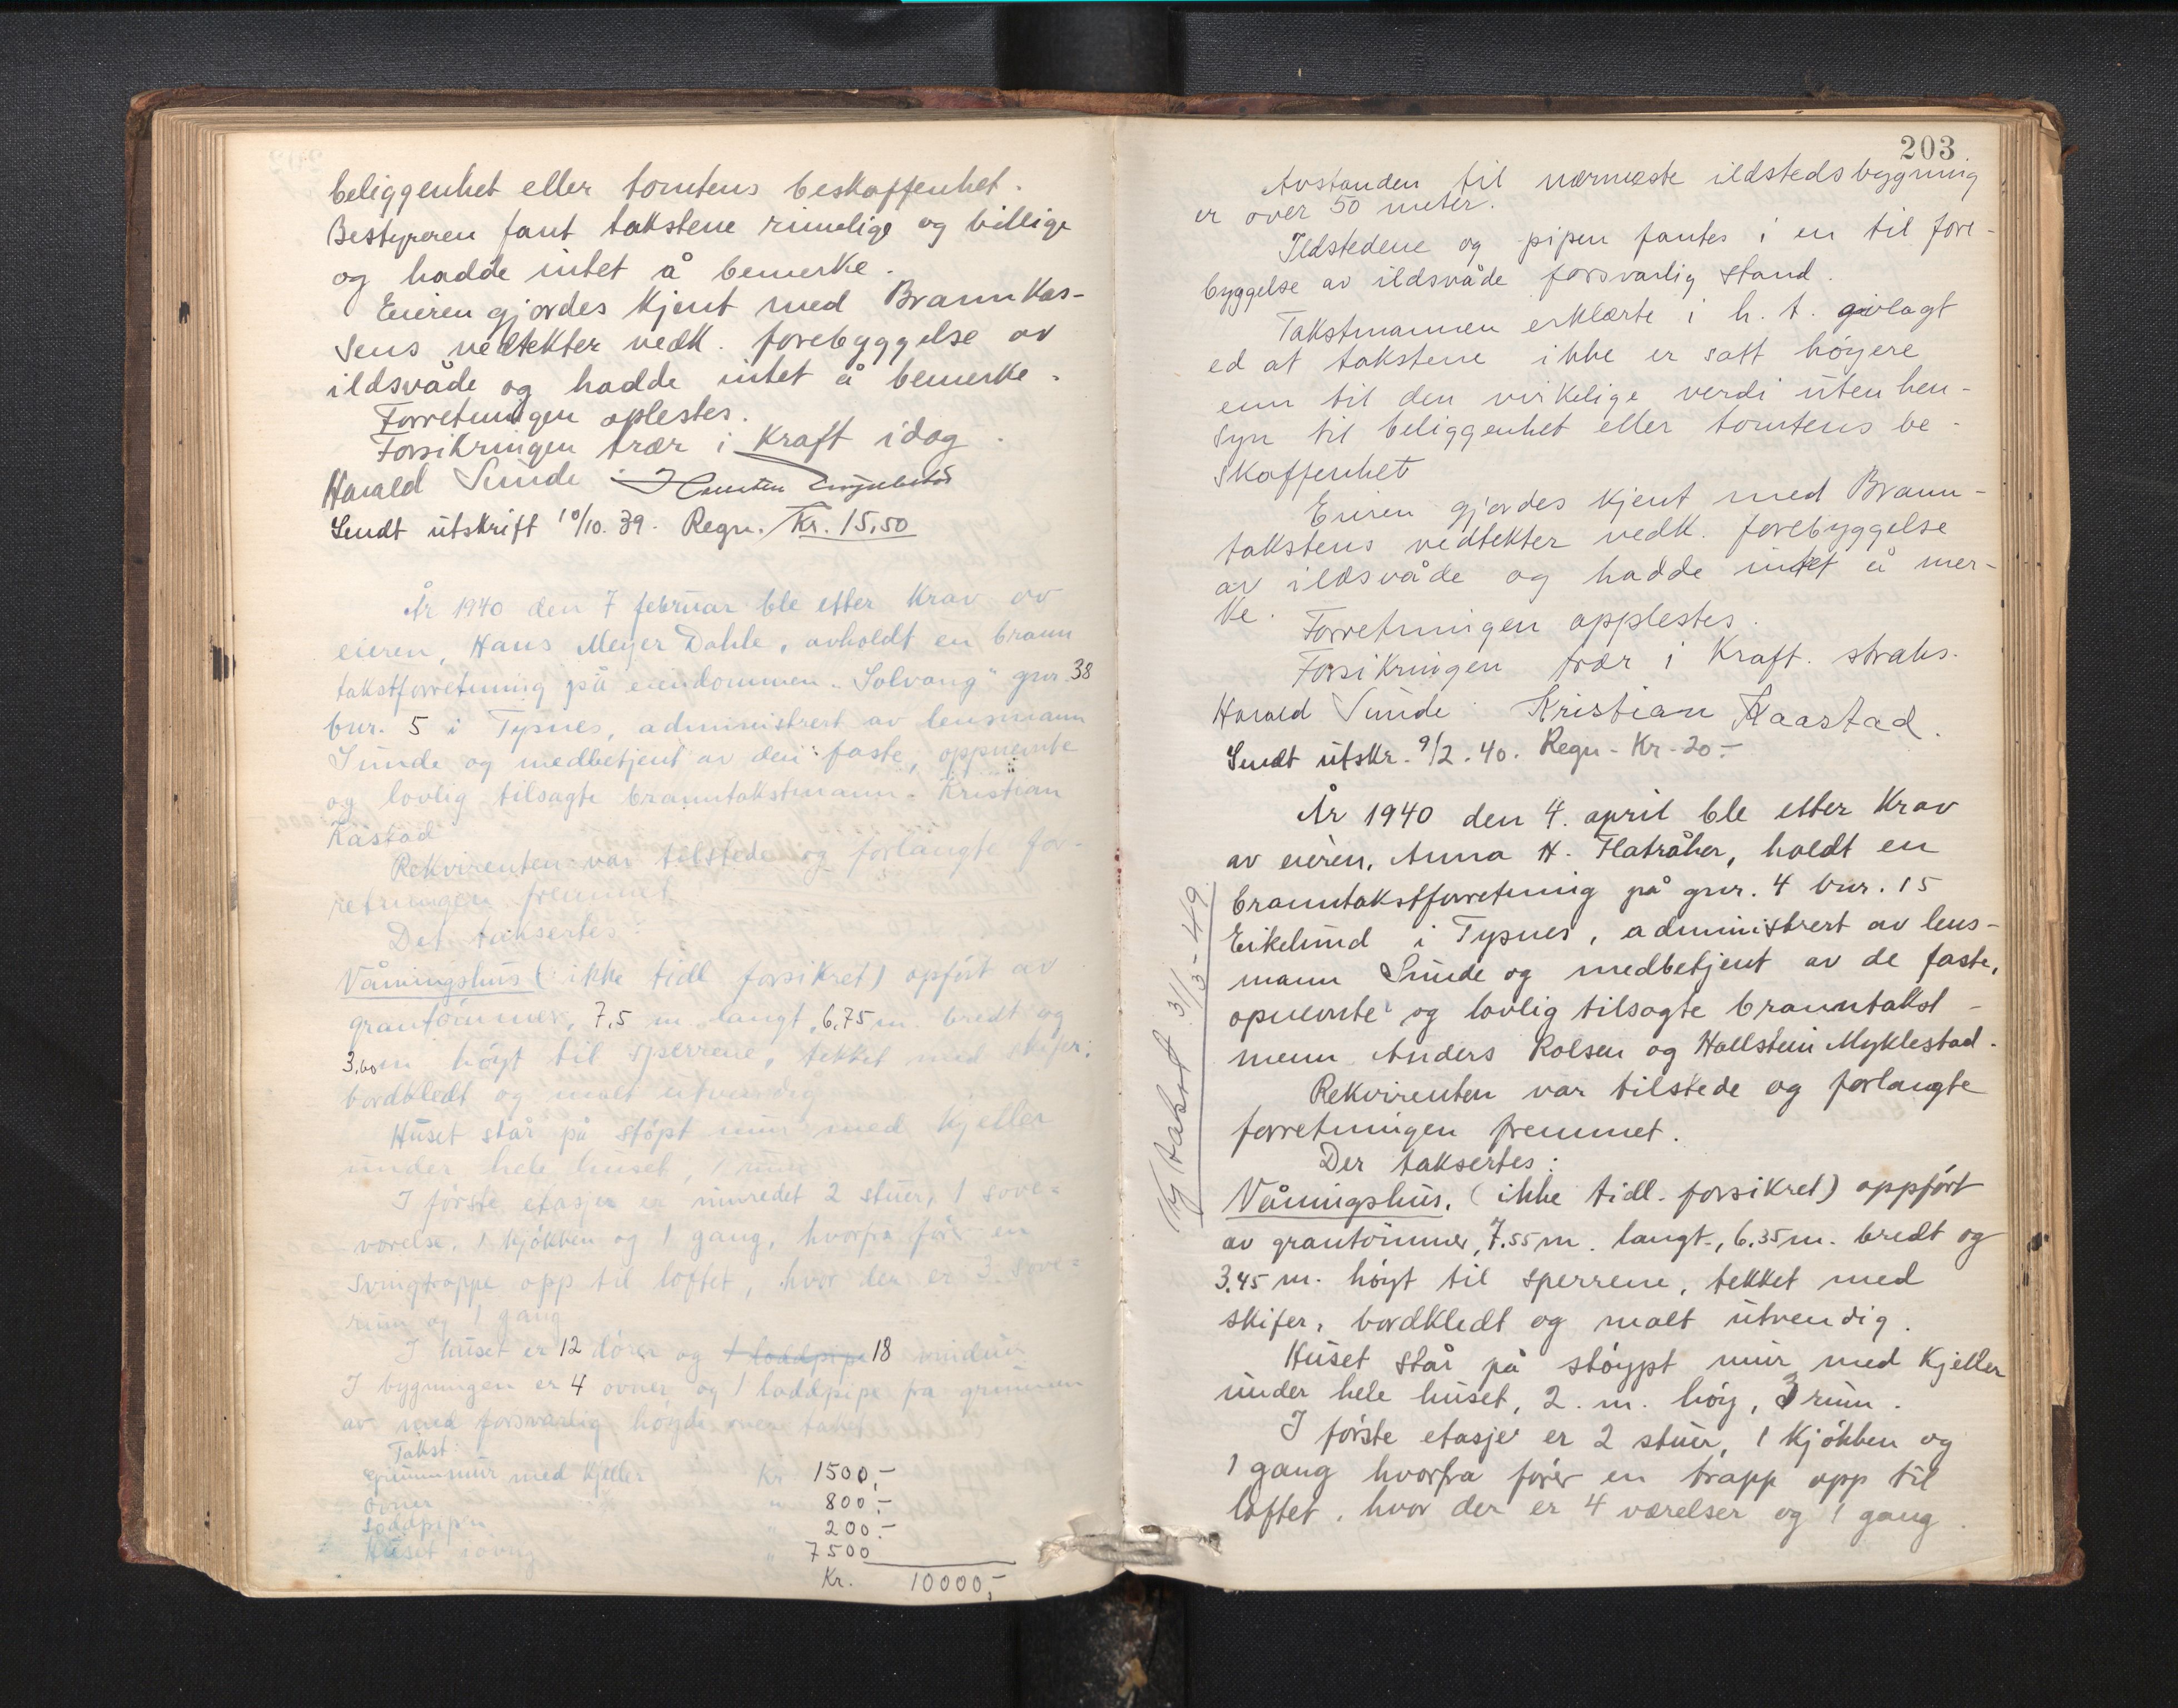 beliggenhet eller tomtens beskaffenhet.
Bestyreren fant takstene rimelige og billige
og hadde intet å bemerke.
Eieren gjordes kjent med Brannkas-
sens vedtekter vedk. forebyggelse av
ildsvåde og hadde intet å bemerke.
Forretningen oplestes.
Forsikringen trær i kraft idag.
Harald Sunde
Sendt utskrift 10/10. 39. Regn. Kr. 15,50
År 1940 den 7 februar ble etter krav av
eieren, Hans Meyer Dahle, avholdt en brann
takstforretning på eiendommen "Solvang" gnr. 38
bnr. 5 i Tysnes, administrert av lensmann
Sunde og medbetjent av den faste, oppnevnte
og lovlig tilsagte branntakstmann Kristian
Kåstad
Rekvirenten var tilstede og forlangte for-
retningen fremmet.
Det taksertes:
Våningshus (ikke tidl forsikret) opført av
grantømmer, 7,5 m. langt, 6,75 m. bredt og
3,60 m høyt til sperrene, tekket med skifer,
bordkledt og malt utvendig
Huset står på støpt mur med kjeller
under hele huset, 1 rum
I første etasje er innredet 2 stuer, 1 sove-
værelse, 1 kjøkken og 1 gang, hvorfra fører en
svingtrappe opp til loftet, hvor der er 3 sove-
rum og 1 gang
I huset er 12 dører og 1 loddpipe 18 vinduer
I bygningen er 4 ovner og 1 loddpipe fra grunnen
av med forsvarlig høyde over taket
Takst:
Grunnmur med kjeller Kr. 1500,-
Ovner " 800,-
Loddpipen " 200.-
Huset iøvrig " 7500
Kr. 10000,-
203
Avstanden til nærmeste ildstedsbygning
er over 50 meter.
Ildstedene og pipen fantes i en til fore-
byggelse av ildsvåde forsvarlig stand.
Takstmannen erklærte i h. t. avlagt
ed at takstene ikke er satt høyere
enn til den virkelige verdi uten hen-
syn til beliggenhet eller tomtens be-
skaffenhet
Eieren gjordes kjent med Brann-
takstens vedtekter vedk. forebyggelse
av ildsvåde og hadde intet å mer-
ke.
Forretningen opplestes.
Forsikringen trær i kraft. straks.
Harald Sunde Kristian Kaastad.
Sendt utskr. 9/2. 40. Regn- Kr- 20.-
År 1940 den 4. april ble etter krav
av eieren, Anna H. Flatråker, holdt en
branntakstforretning på gnr. 4 bnr. 15
Eikelund i Tysnes, administrert av lens-
mann Sunde og medbetjent av de faste,
opnevnte og lovlig tilsagte branntakst-
menn Anders Rolsen og Hallstein Myklestad.
Rekvirenten var tilstede og forlangte
forretningen fremmet.
Der taksertes:
Våningshus, (ikke tidl. forsikret) oppført
av grantømmer, 7.55 m. langt, 6.35 m. bredt og
3.45 m. høyt til sperrene, tekket med
skifer, bordkledt og malt utvendig.
Huset står på støypt mur med kjeller
under hele huset, 2. m. høy, 3 rum.
I første etasje er 2 stuer, 1 kjøkken og
1 gang hvorfra fører en trapp opp til
loftet, hvor der er 4 værelser og 1 gang.
Ny takst 31/3-49